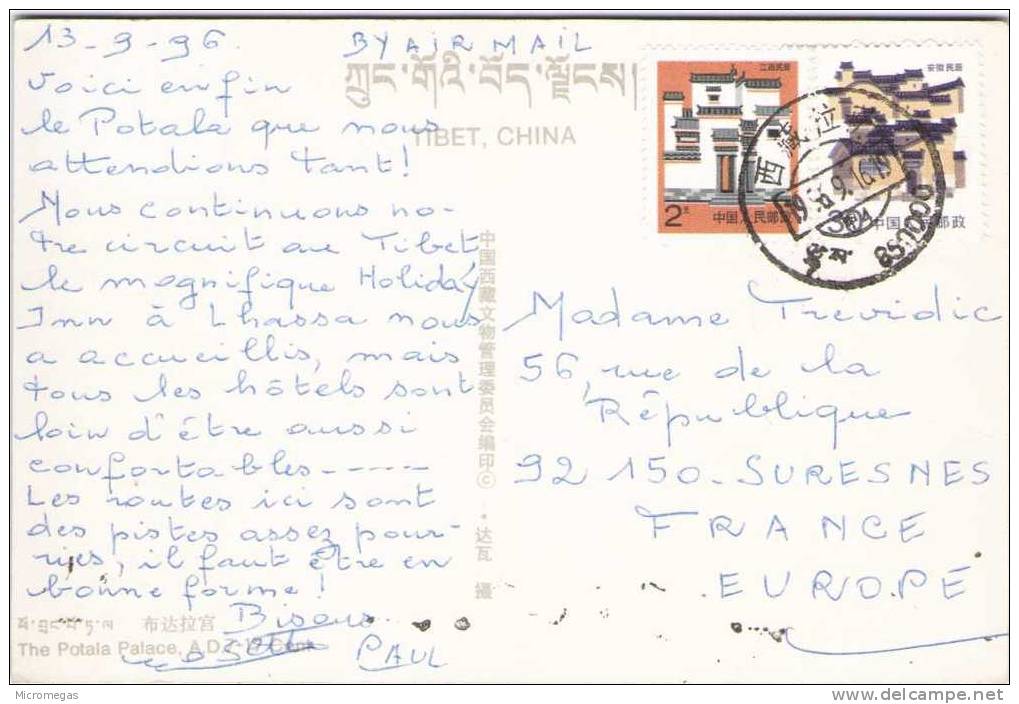 13-9-96.
BY AIR MAIL
Voici enfin
le Potala que nous
attendions tant!
Nous continuons no-
tre circuit au Tibet
le magnifique Holiday
Inn à Lhassa nous
a accueillis, mais
tous les hôtels sont
loin d'être aussi
confortables-----
Les routes ici sont
des pistes assez pour-
ries, il faut être en
bonne forme!
Bisous
PAUL
TIBET, CHINA
江西民居
2分
中国人民邮政
安徽民居
30分
中国人民邮政
西藏
850000
中国西藏文物管理委员会编印©
·达瓦 摄
Madame Trevidic
56, rue de la
République
92 150 - SURESNES
FRANCE
EUROPE
布达拉宫
The Potala Palace, A.D.
Micromegas
delcampe.net